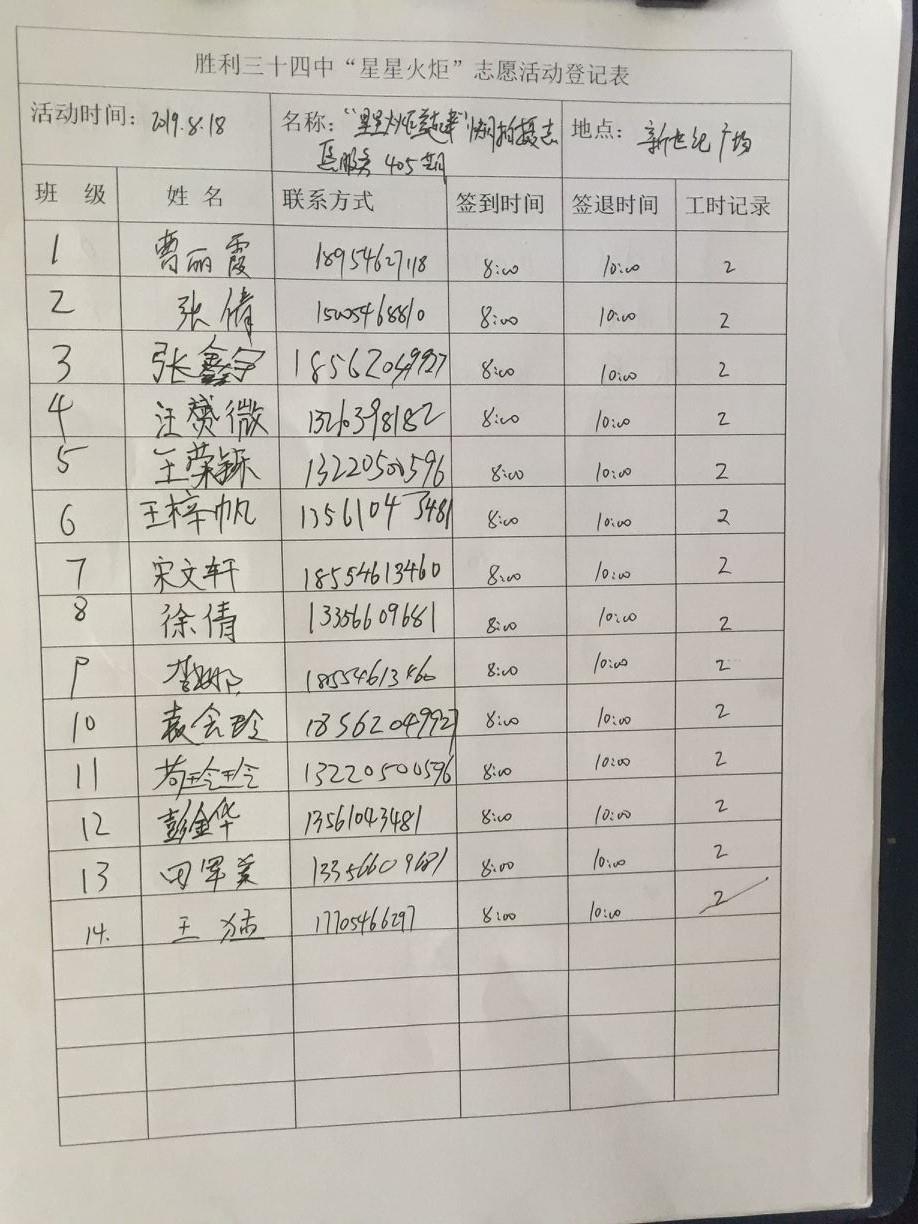 胜利三十四中“星星火炬”志愿活动登记表
活动时间: 2019.8.18 名称: “星星火炬 拍摄志 地点: 新世纪广场
愿服务 405期
班 级 姓 名 联系方式 签到时间 签退时间 工时记录
1 曹丽霞 18954627118 8:00 10:00 2
2 张倩 15005468810 8:00 10:00 2
3 张鑫宇 18562049927 8:00 10:00 2
4 汪赟微 1326398182 8:00 10:00 2
5 王荣铄 13220500596 8:00 10:00 2
6 王梓帆 13561043481 8:00 10:00 2
7 宋文轩 18554613460 8:00 10:00 2
8 徐倩 13356609681 8:00 10:00 2
9 李娜 18554613460 8:00 10:00 2
10 袁会玲 18562049927 8:00 10:00 2
11 苟玲玲 13220500596 8:00 10:00 2
12 彭金华 13561043481 8:00 10:00 2
13 田军美 13356609681 8:00 10:00 2
14. 王 17705466297 8:00 10:00 2